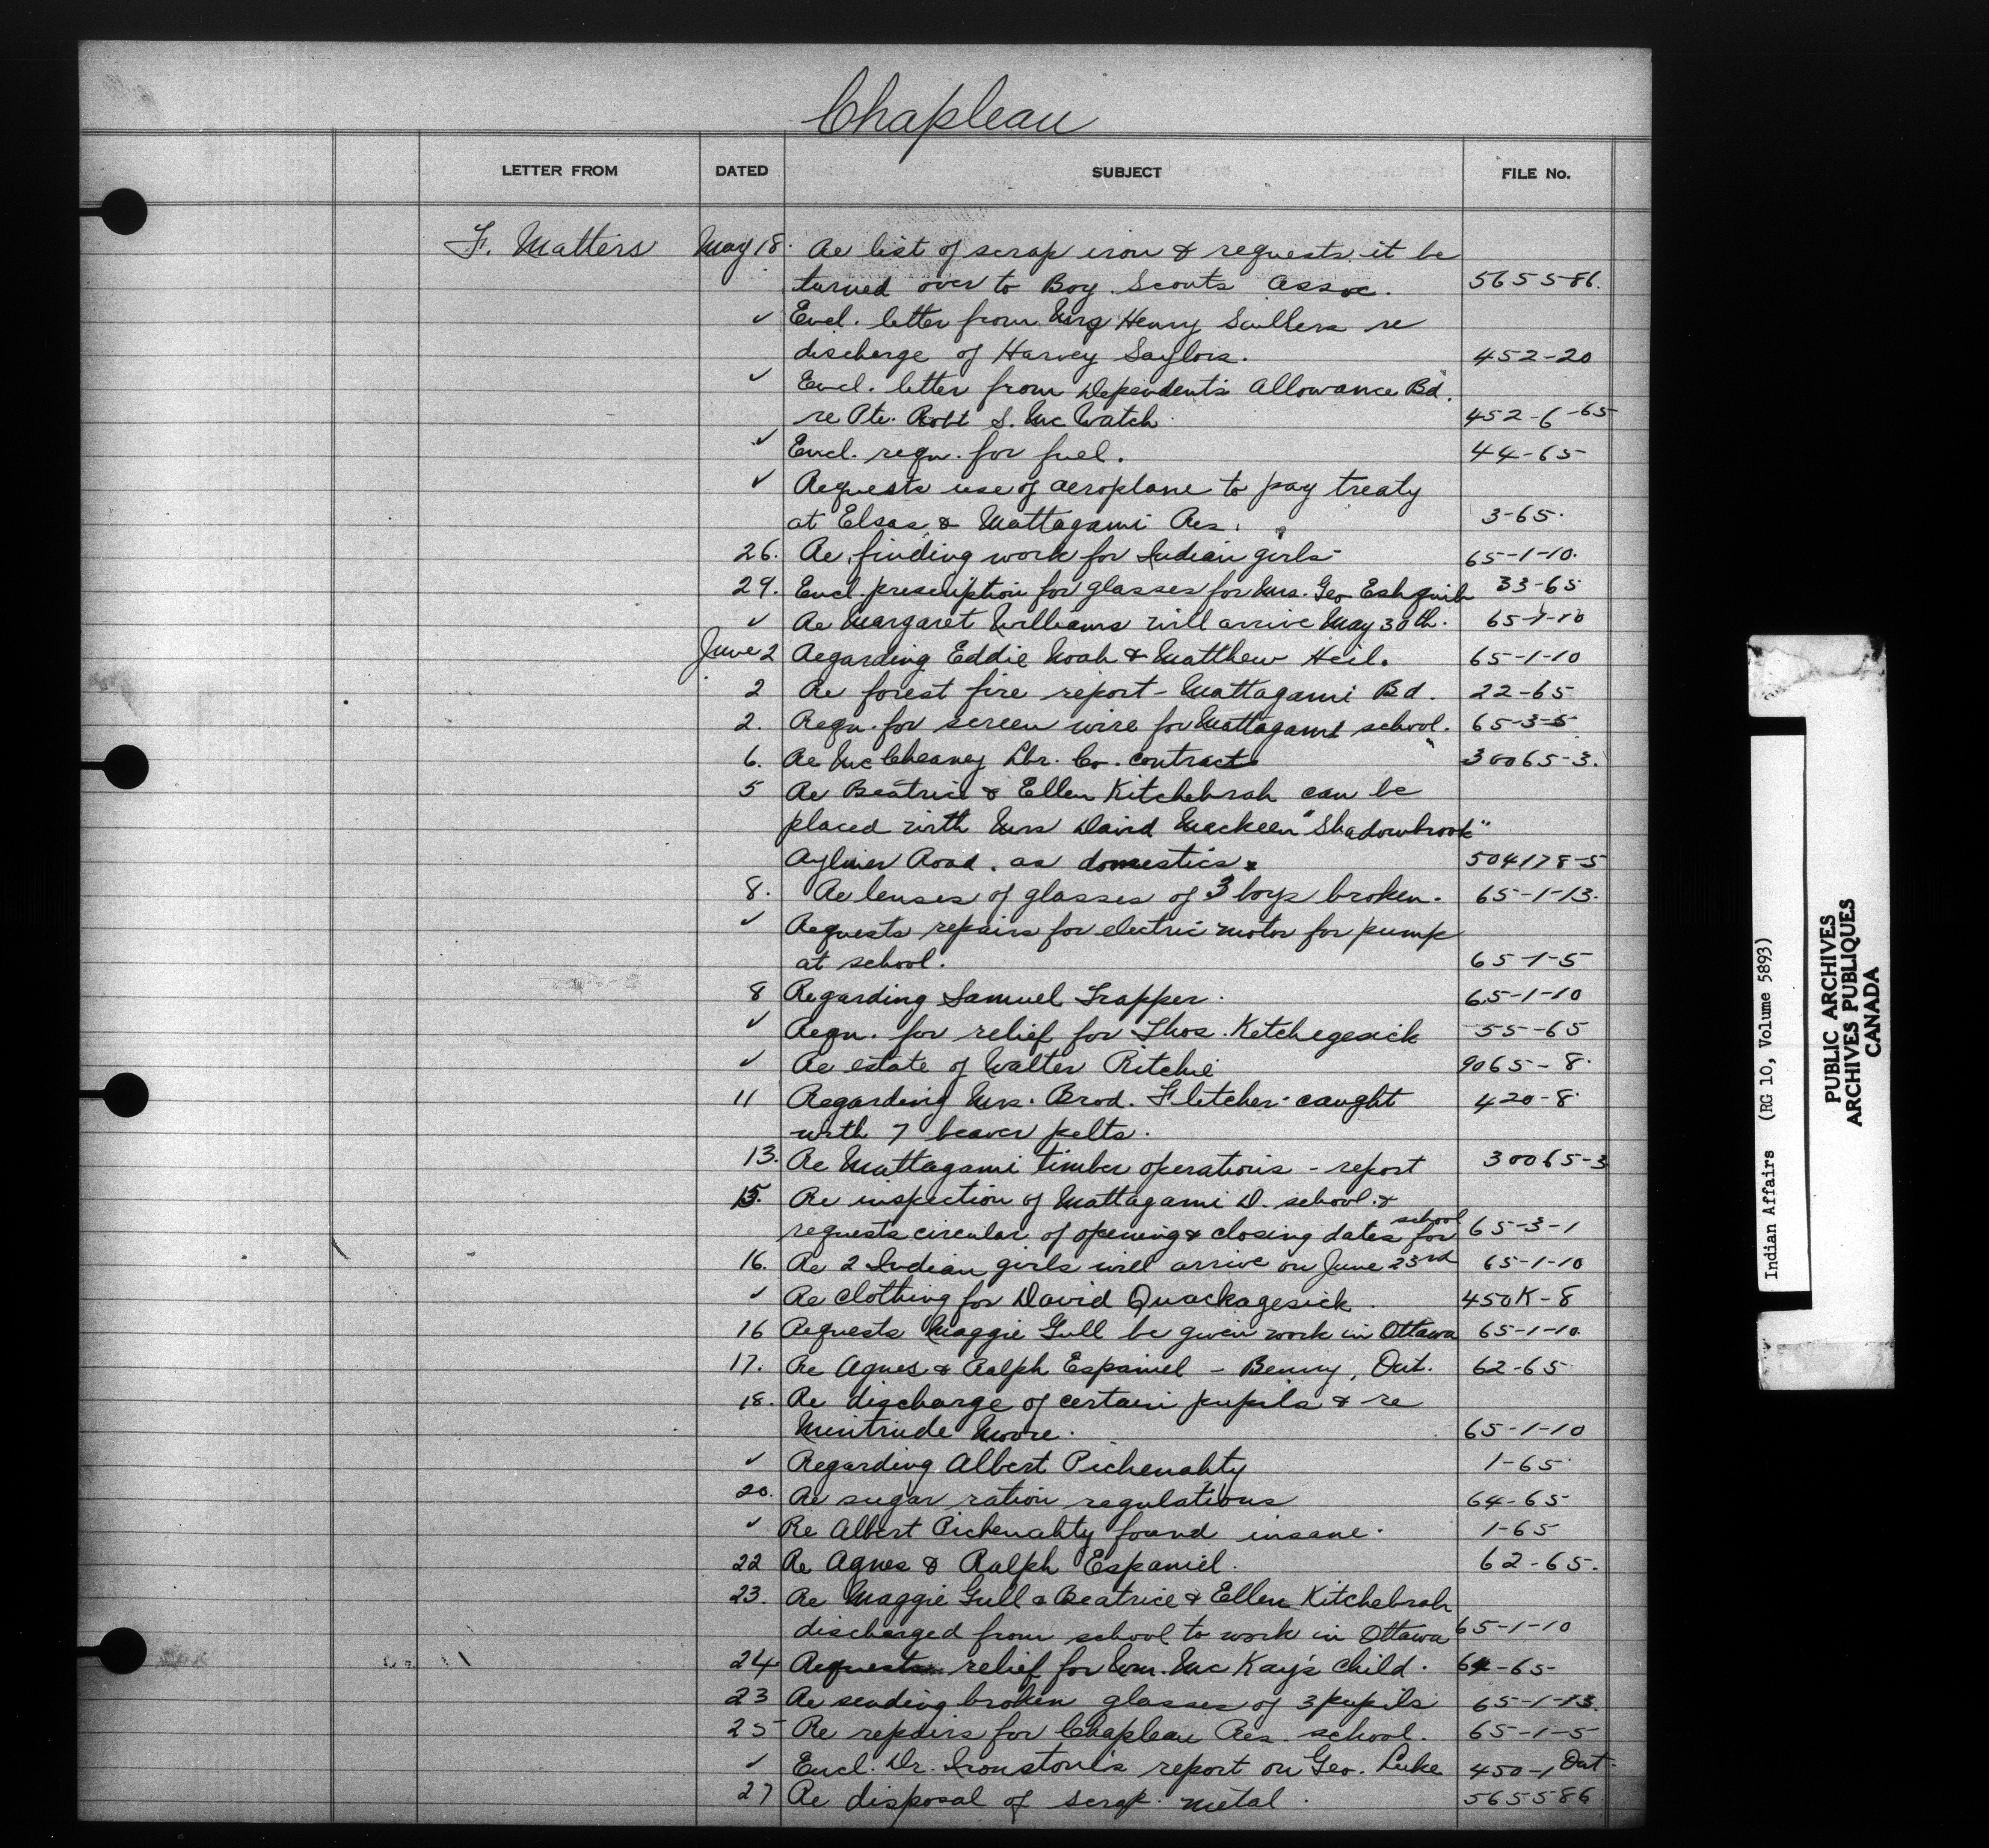 Chapleau
LETTER FROM DATED SUBJECT FILE No.
F. Matters May 18. Re list of scrap iron & requests it be
turned over to Boy Scouts Assoc. 565586.
✓ Encl. letter from Mrs Henry Saillers re
discharge of Harvey Saylors. 452-20
✓ Encl. letter from Dependents Allowance Bd.
re Pte. Robt S. McWatch. 452-6-65
✓ Encl. reqn. for fuel. 44-65
✓ Requests use of aeroplane to pay treaty
at Elsas & Mattagami Res. 3-65.
26. Re finding work for Indian girls 65-1-10.
29. Encl. prescription for glasses for Mrs. Geo Eshquib 33-65
✓ Re Margaret Williams will arrive May 30th. 65-1-10
June 2 Regarding Eddie Noah & Matthew Heil. 65-1-10
2 Re forest fire report - Mattagami Bd. 22-65
2. Reqn. for screen wire for Mattagami school. 65-3-5
6. Re McChesney Lbr. Co. contract 30065-3.
5 Re Beatrice & Ellen Kitchebrah can be
placed with Mrs David Mackeen "Shadowbrook"
Aylmer Road. as domestics. 504178-5
8. Re lenses of glasses of 3 boys broken. 65-1-13.
✓ Requests repairs for electric motor for pump
at school. 65-1-5
8 Regarding Samuel Trapper. 65-1-10
✓ Reqn. for relief for Thos. Ketchegesick 55-65
✓ Re estate of Walter Ritchie 9065-8.
11 Regarding Mrs. Brod. Fletcher - caught 420-8
with 7 beaver pelts.
13. Re Mattagami timber operations - report 30065-3
15. Re inspection of Mattagami D. school. &
requests circular of opening & closing dates for school 65-3-1
16. Re 2 Indian girls will arrive on June 23rd 65-1-10
✓ Re clothing for David Quackagesick. 450K-8
16 Requests Maggie Gull be given work in Ottawa 65-1-10.
17. Re Agnes & Ralph Espaniel - Benny, Ont. 62-65
18. Re discharge of certain pupils & re
Mintrude Moore. 65-1-10
✓ Regarding Albert Pichenahty 1-65
20. Re sugar ration regulations 64-65
✓ Re Albert Pichenahty found insane. 1-65
22 Re Agnes & Ralph Espaniel. 62-65.
23. Re Maggie Gull & Beatrice & Ellen Kitchebrah
discharged from school to work in Ottawa 65-1-10
24 Requests relief for Wm. McKay's child. 64-65
23 Re sending broken glasses of 3 pupils 65-1-13.
25 Re repairs for Chapleau Res. school. 65-1-5
✓ Encl. Dr. Ironstone's report on Geo. Luke 450-1 Ont.
27 Re disposal of scrap metal. 565586
Indian Affairs (RG 10, Volume 5893)
PUBLIC ARCHIVES
ARCHIVES PUBLIQUES
CANADA